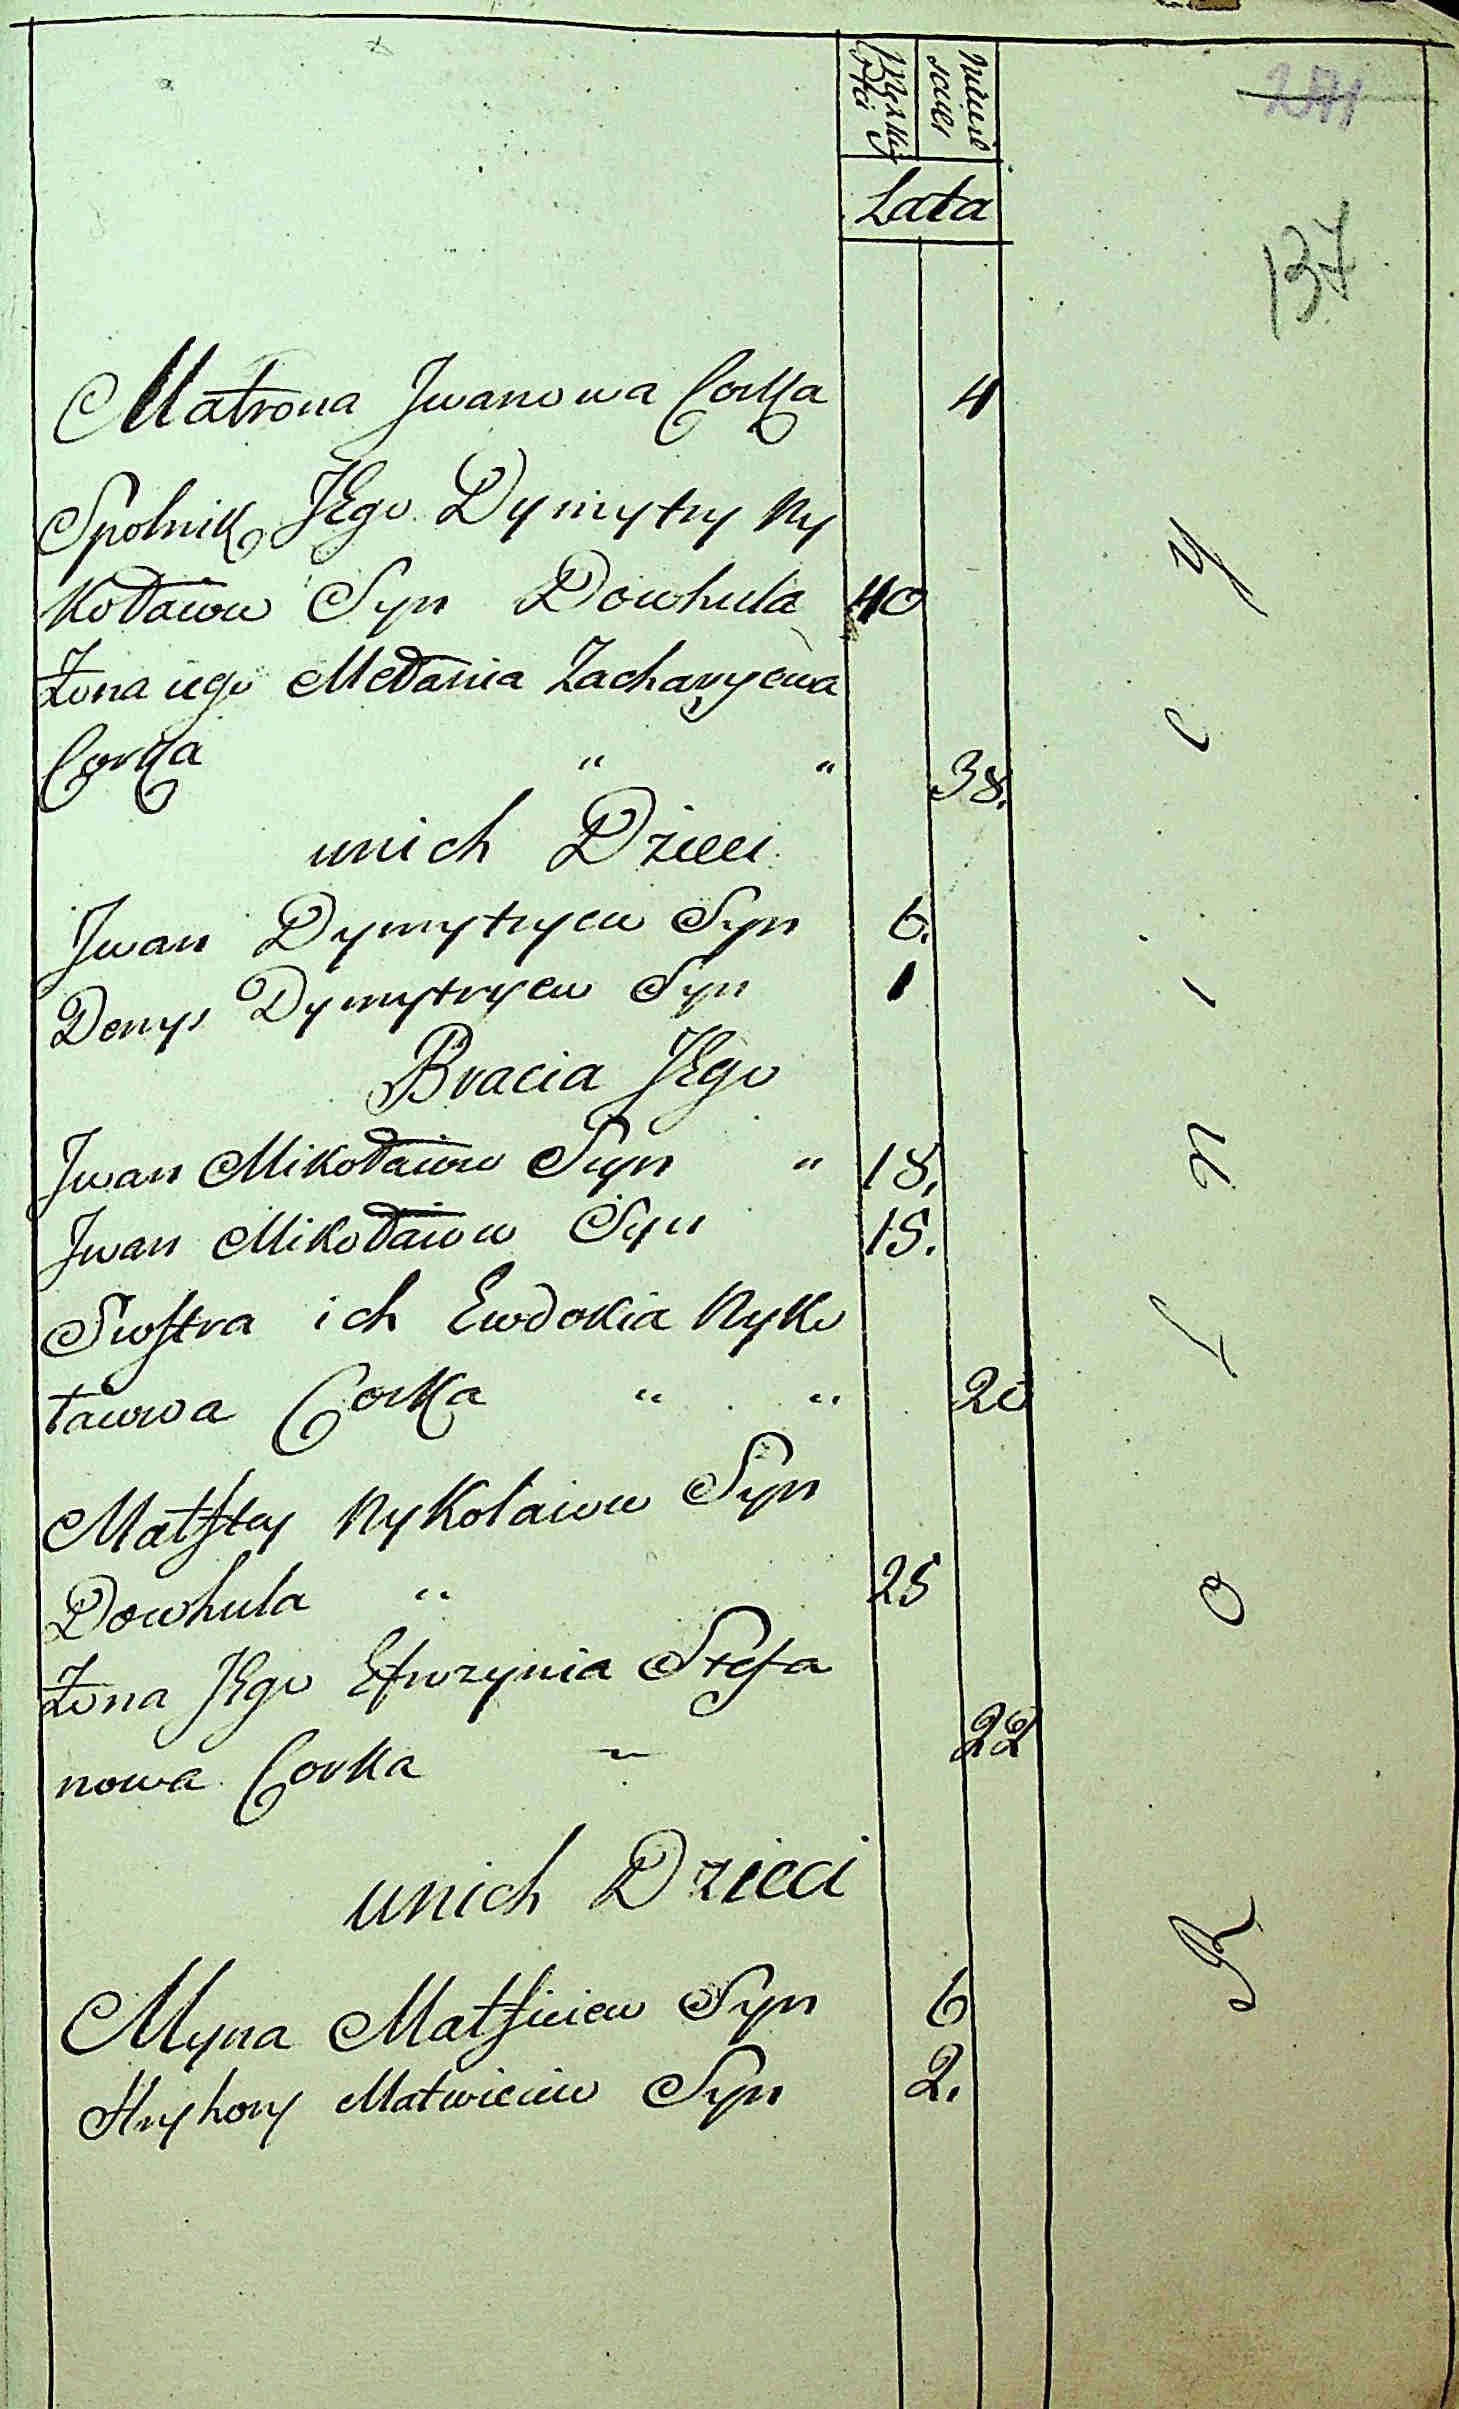 Męzkiej Płci
Lata
137
Matrona Jwanowa Corka 4
Spolnik JEgo Dymytry Ny
Kołaiow Syn Dowhula 40
Żona iego Mełania Zacharyewa
Corka " " 38.
unich Dzieci
Jwan Dymytryew Syn 6.
Denys Dymytryew Syn 1
Bracia JEgo
Jwan Mikołaiow Syn " 18.
Jwan Mikołaiow Syn 15.
Siostra ich Ewdokia Nyko
łaiowa Corka " " 20
Matfey Nykolaiow Syn
Dowhula " 25
Żona JEgo Efrozynia Stefa
nowa Corka " 22
unich Dzieci
Myna Matfieiew Syn 6
Hryhory Matwieiew Syn 2.
Rolnicy